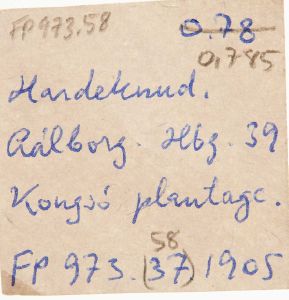 FP 973.58
0.78
0,785
Hardeknud.
Aálborg. Hbg. 39
Kongsö plantage.
58
FP 973.(37) 1905